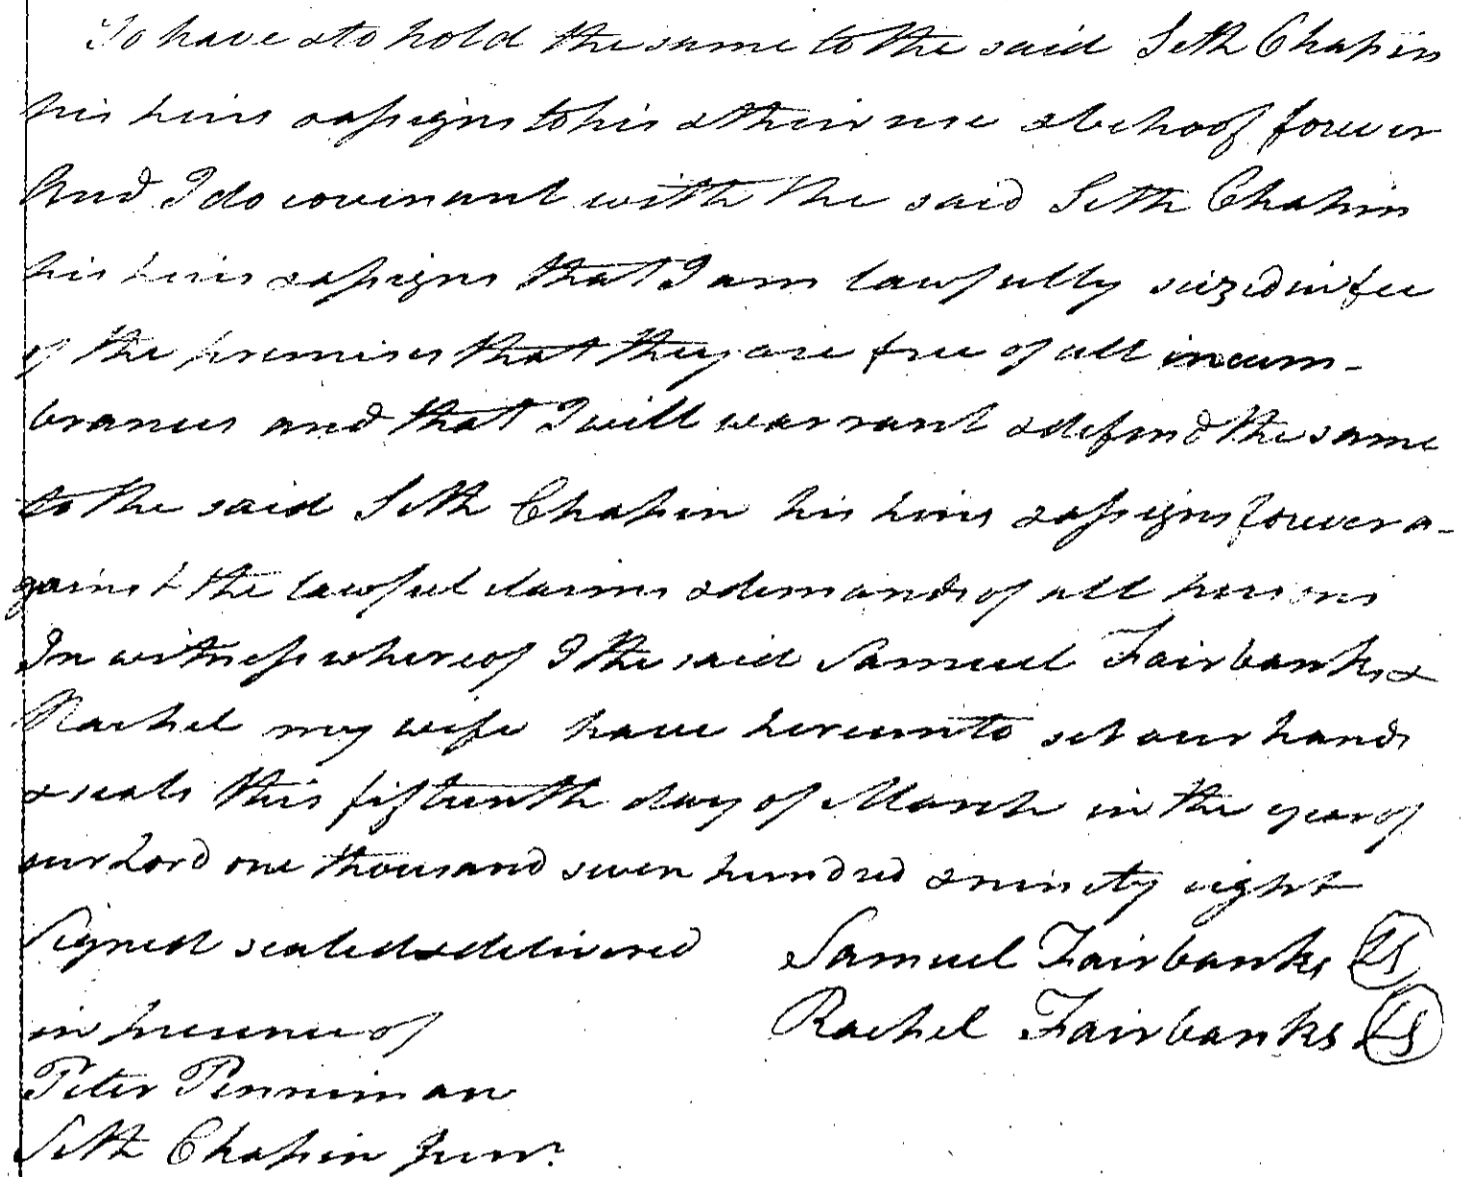 To have & to hold the same to the said Seth Chapin
his heirs & assigns to his & their use & behoof forever
And I do covenant with the said Seth Chapin
his heirs & assigns that I am lawfully seized in fee
of the premises that they are free of all incum-
brances and that I will warrant & defend the same
to the said Seth Chapin his heirs & assigns forever a-
gainst the lawful claims & demands of all persons
In witness whereof I the said Samuel Fairbanks &
Rachel my wife have hereunto set our hands
& seals this fifteenth day of March in the year of
our Lord one thousand seven hundred & ninety eight
Signed sealed & delivered Samuel Fairbanks LS
in presence of Rachel Fairbanks LS
Peter Penniman
Seth Chapin Junr.